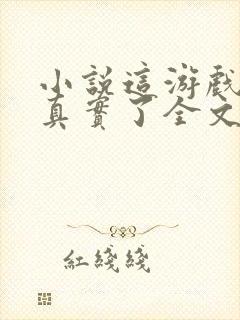 小說這游戲
真實了全文
紅綫綫